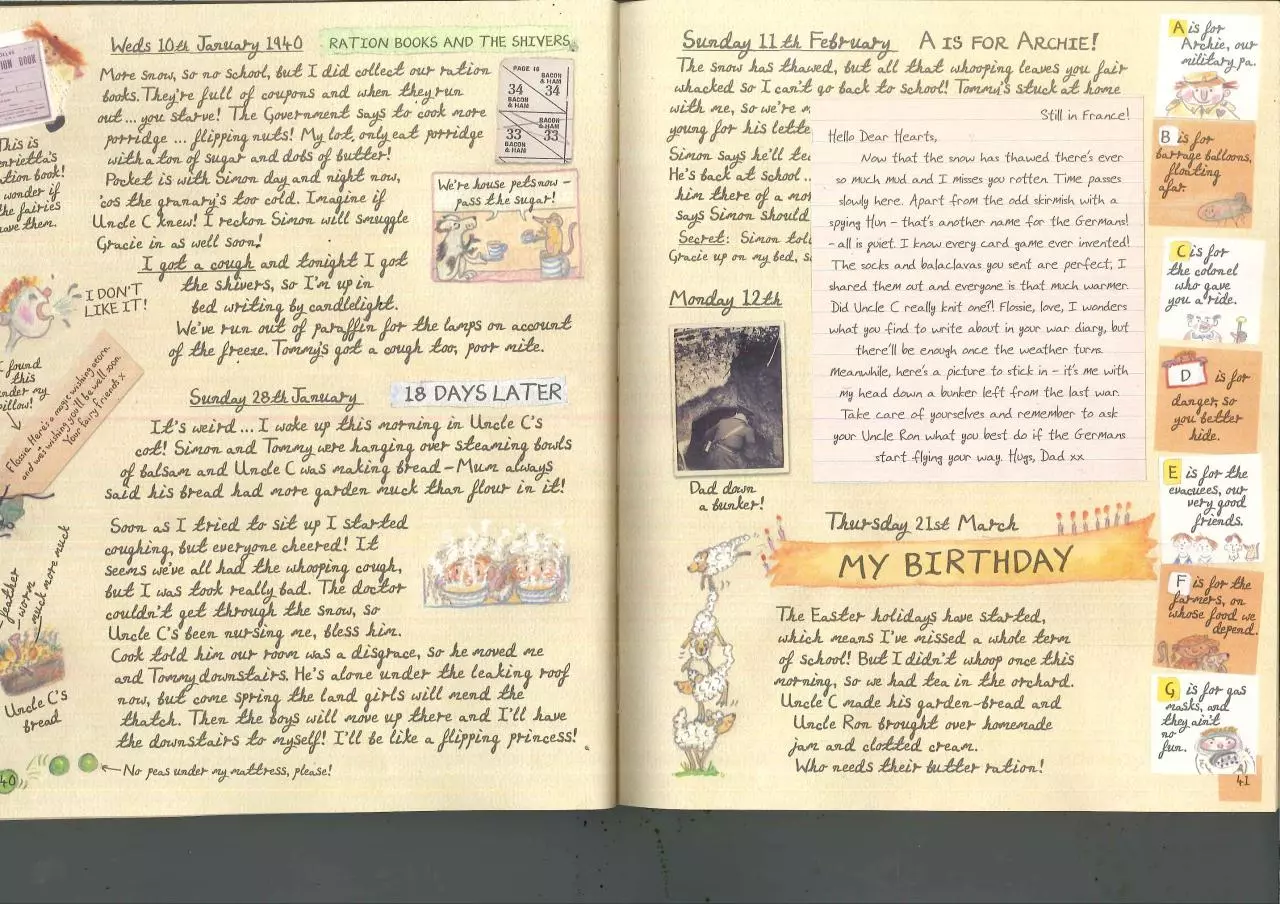 Weds 10th January 1940
RATION BOOKS AND THE SHIVERS
More snow, so no school, but I did collect our ration
books. They're full of coupons and when they run
out ... you starve! The Government says to cook more
porridge ... flipping nuts! My lot only eat porridge
with a ton of sugar and dobs of butter!
Pocket is with Simon day and night now,
'cos the granary's too cold. Imagine if
Uncle C knew! I reckon Simon will smuggle
Gracie in as well soon!
PAGE 16
BACON & HAM
34
34
BACON & HAM
BACON & HAM
33
33
BACON & HAM
We're house pets now –
pass the sugar!
ION BOOK
This is
enrietta's
tion book!
wonder if
the fairies
have them.
I got a cough and tonight I got
the shivers, so I'm up in
bed writing by candlelight.
We've run out of paraffin for the lamps on account
of the freeze. Tommy's got a cough too, poor mite.
I DON'T
LIKE IT!
I found
this
under my
pillow!
Flossie, Here's a magic wishing acorn,
and we're wishing you'll be well soon.
Your fairy friends x
Sunday 28th January
18 DAYS LATER
It's weird ... I woke up this morning in Uncle C's
cot! Simon and Tommy were hanging over steaming bowls
of balsam and Uncle C was making bread – Mum always
said his bread had more garden muck than flour in it!
Soon as I tried to sit up I started
coughing, but everyone cheered! It
seems we've all had the whooping cough,
but I was took really bad. The doctor
couldn't get through the snow, so
Uncle C's been nursing me, bless him.
Cook told him our room was a disgrace, so he moved me
and Tommy downstairs. He's alone under the leaking roof
now, but come spring the land girls will mend the
thatch. Then the boys will move up there and I'll have
the downstairs to myself! I'll be like a flipping princess!
feather
worm
muck more muck
Uncle C's
bread
No peas under my mattress, please!
40
Sunday 11th February
A IS FOR ARCHIE!
The snow has thawed, but all that whooping leaves you fair
whacked so I can't go back to school! Tommy's stuck at home
with me, so we're m
young for his lette
Simon says he'll tea
He's back at school ..
him there of a mor
says Simon should
Secret: Simon tol
Gracie up on my bed, s
Still in France!
Hello Dear Hearts,
Now that the snow has thawed there's ever
so much mud and I misses you rotten. Time passes
slowly here. Apart from the odd skirmish with a
spying Hun – that's another name for the Germans!
– all is quiet. I know every card game ever invented!
The socks and balaclavas you sent are perfect, I
shared them out and everyone is that much warmer.
Did Uncle C really knit one?! Flossie, love, I wonders
what you find to write about in your war diary, but
there'll be enough once the weather turns.
Meanwhile, here's a picture to stick in – it's me with
my head down a bunker left from the last war.
Take care of yourselves and remember to ask
your Uncle Ron what you best do if the Germans
start flying your way. Hugs, Dad xx
Monday 12th
Dad down
a bunker!
Thursday 21st March
MY BIRTHDAY
The Easter holidays have started,
which means I've missed a whole term
of school! But I didn't whoop once this
morning, so we had tea in the orchard.
Uncle C made his garden-bread and
Uncle Ron brought over homemade
jam and clotted cream.
Who needs their butter ration!
A is for
Archie, our
military pa.
B is for
barrage balloons,
floating
afar.
C is for
the colonel
who gave
you a ride.
D is for
danger, so
you better
hide.
E is for the
evacuees, our
very good
friends.
F is for the
farmers, on
whose food we
depend.
G is for gas
masks, and
they ain't
no
fun.
41